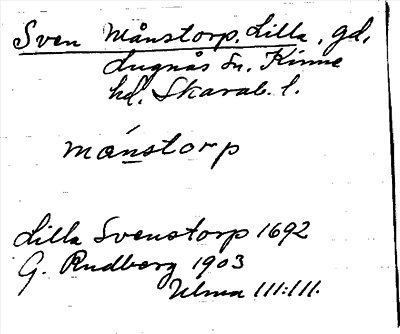 Sven Månstorp, Lilla, gd,
Lugnås sn. Kinne
hd. Skarab. l.
månstorp
Lilla Svenstorp 1692
G. Rudberg 1903
Ulma 111:111.